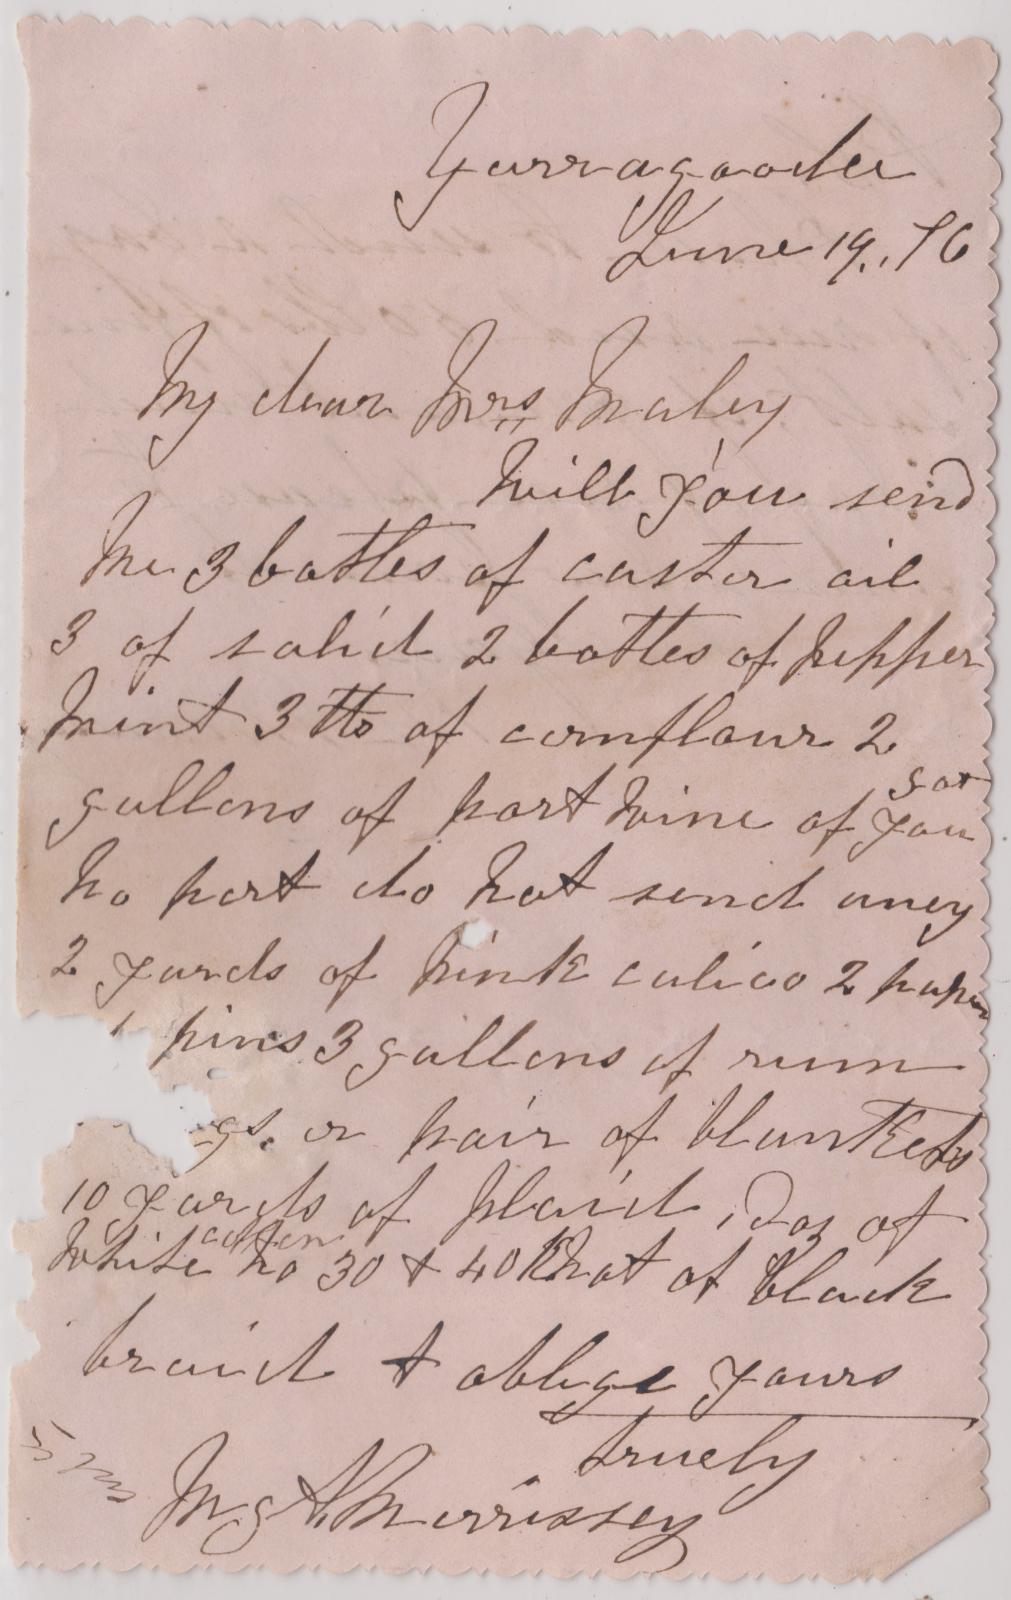 Yarragooda
June 19., 76
My dear Mrs Maley
Will you send
Me 3 bottles of caster oil
3 of salid 2 bottles of pepper
Mint 3 tts of cornflour 2
gallons of port Wine of you
got
No port do Not send aney
2 yards of pink calico 2 paper
pins 3 gallons of rum
gs. or pair of blunkets
10 yards of plaid , Doz of
cotten
White No 30 + 40 Knot of black
braid + oblige yours
truely
Morrissey